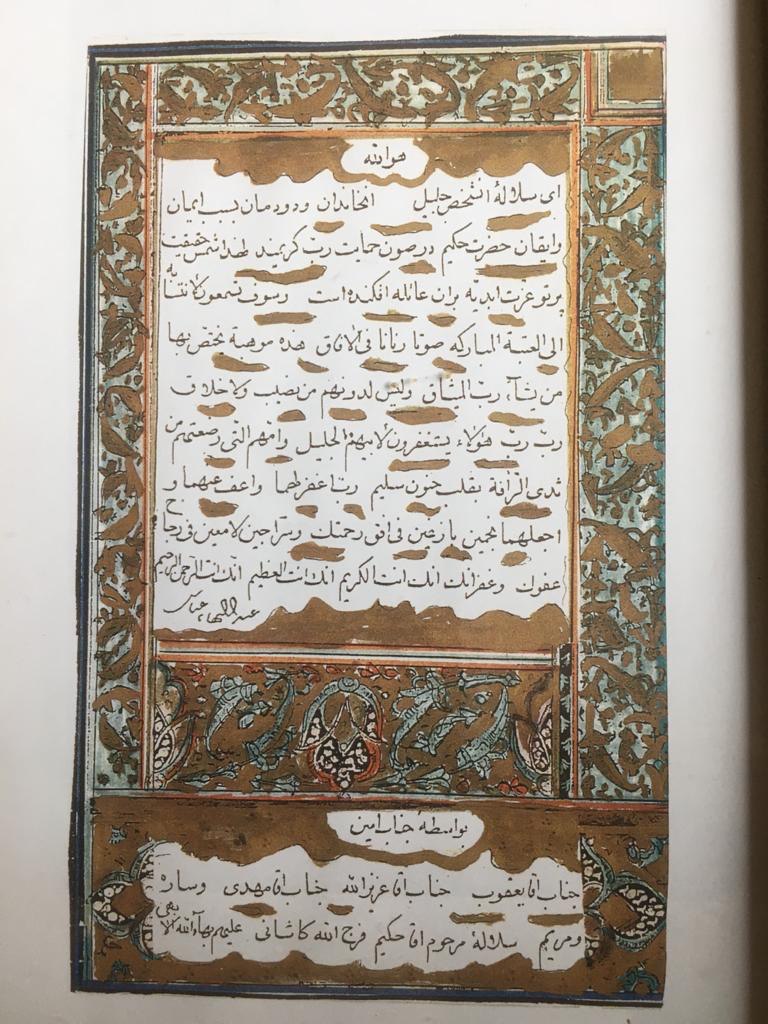 هوالله
ای سلالهٔ آنشخص جلیل آنخاندان و دودمان بسبب ایمان
وایقان حضرت حکیم در صون حمایت رب کریمند لهذا شمس حقیقت
پرتو عزت ابدیه بر ان عائله افکنده است وسوف تسمعون لانتسابه
الی العتبة المبارکه صوتا رنانا فی الافاق هذه موهبة یختص بها
من یشآء رب المیثاق ولیس لدونهم من نصیب ولا خلاق
رب رب هؤلاء یستغفرون لابیهم الجلیل وامهم التی رضعتهم من
ثدی الرافة بقلب حنون سلیم رب اغفر لهما واعف عنهما و
اجعلهما نجمین بازغین فی افق رحمتک وسراجین لامعین فی زجاج
عفوک وغفرانک انک انت الکریم انک انت العظیم انک انت الرحمن الرحیم
عبدالبهاء عباس
بواسطهٔ جناب امین
جناب اقا یعقوب جناب اقا عزیز الله جناب اقا مهدی وساره
ومریم سلالهٔ مرحوم اقا حکیم فرج الله کاشانی علیهم بهآءالله الابهی